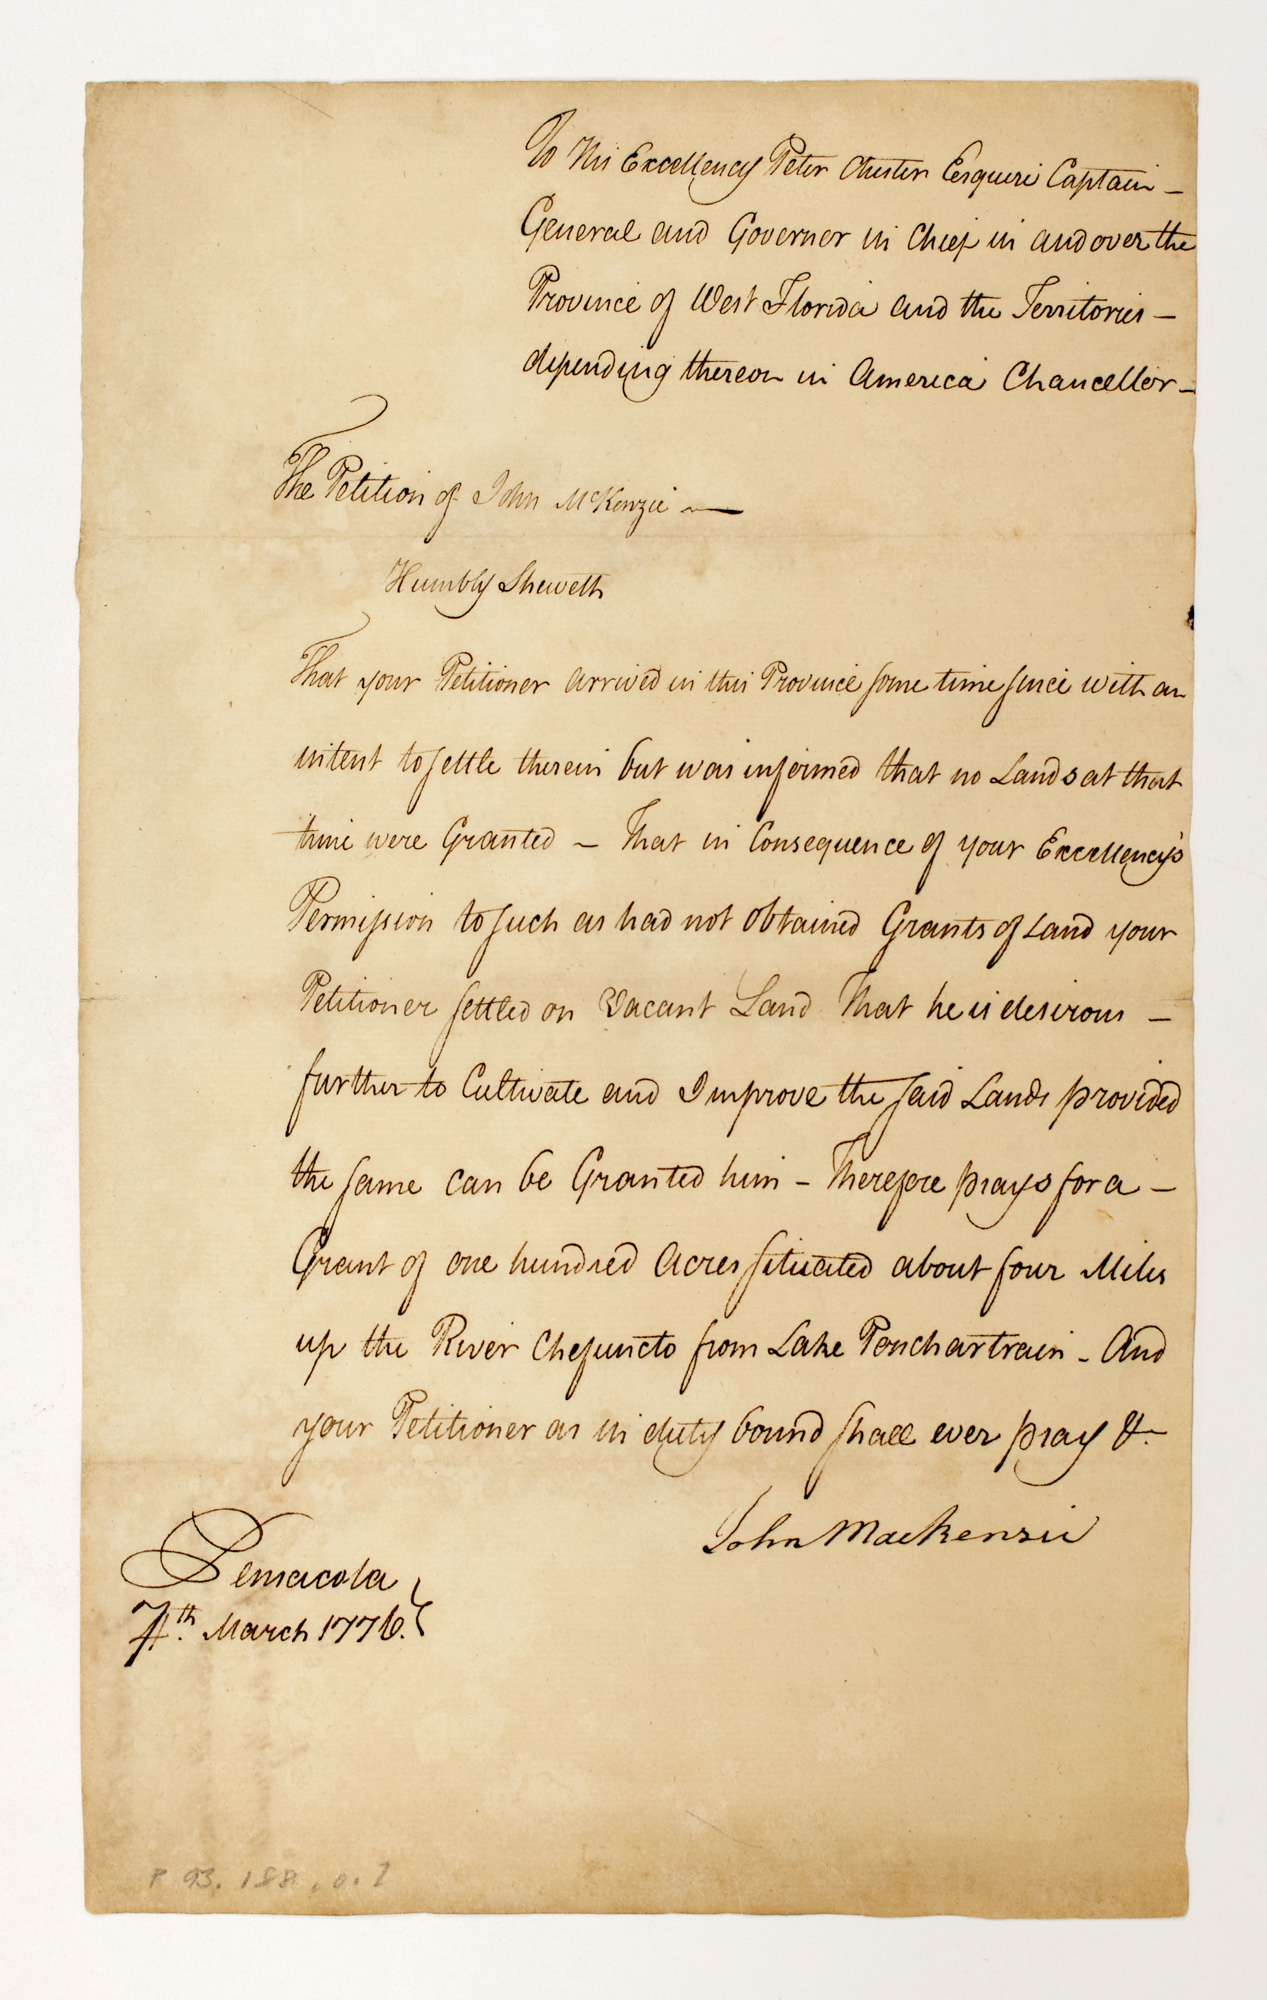 To His Excellency Peter Chester Esquire Captain –
General and Governor in Chief in and over the
Province of West Florida and the Territories –
depending thereon in America Chancellor –
The Petition of John McKenzie —
Humbly Sheweth
That your Petitioner arrived in this Province some time since with an
intent to settle therein but was informed that no Lands at that
time were Granted – That in Consequence of your Excellency's
Permission to such as had not obtained Grants of Land your
Petitioner settled on Vacant Land That he is desirous –
further to Cultivate and Improve the said Lands provided
the same can be Granted him – Therefore prays for a –
Grant of one hundred Acres situated about four Miles
up the River Chefuncto from Lake Ponchartrain – And
your Petitioner as in duty bound shall ever pray &c
John Mackenzie
Pensacola
March 1776.
P 93.188.0.